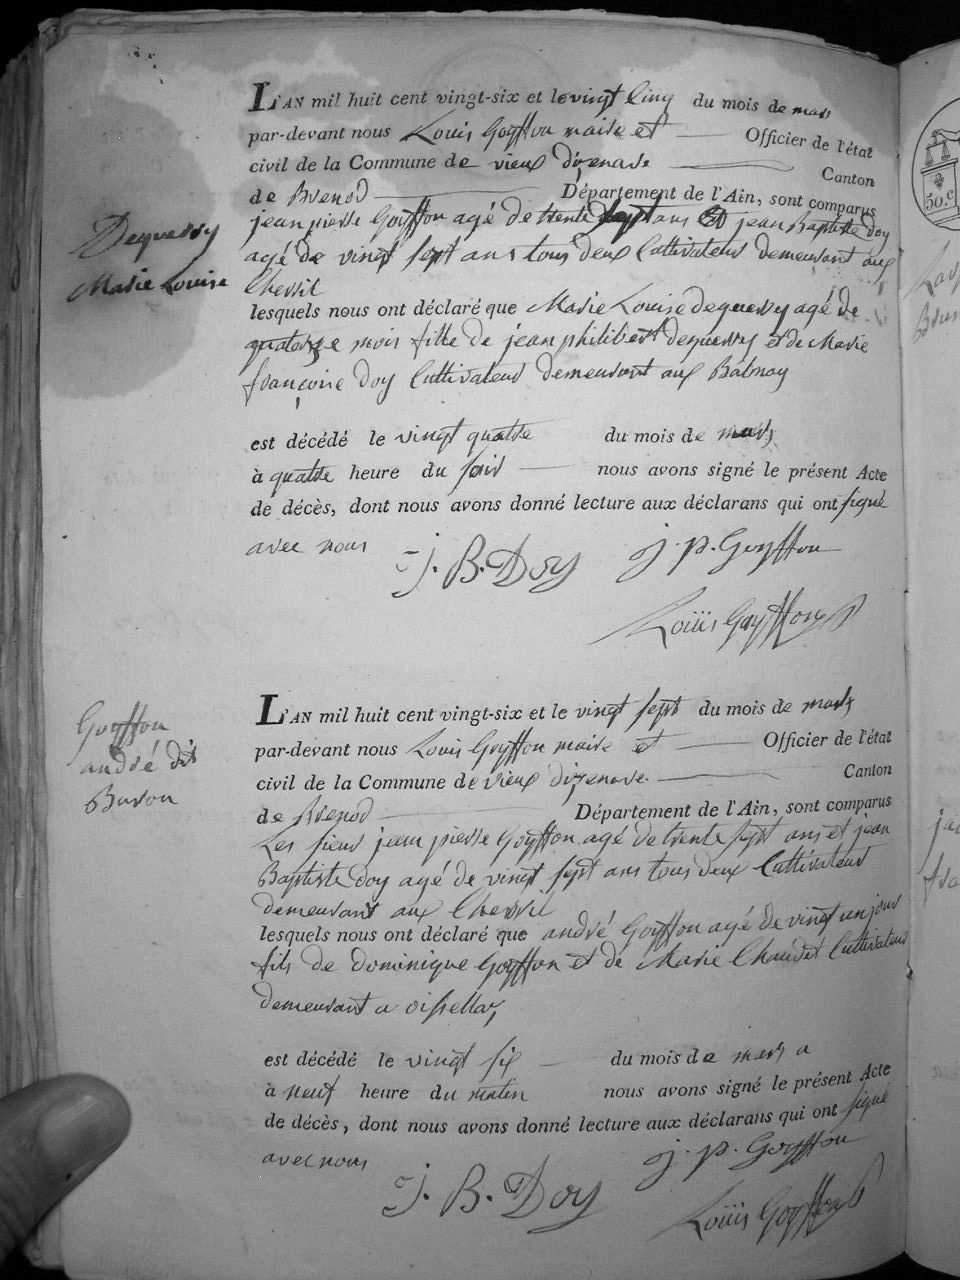 L'AN mil huit cent vingt-six et le vingt cinq du mois de mars
par-devant nous Louis Goyffon maire et Officier de l'état
civil de la Commune de vieux d'izenave Canton
de Brenod Département de l'Ain, sont comparus
jean pierre Goyffon agé de trente sept ans et jean Baptiste doy
agé de vingt sept ans tous deux Cultivateurs demeurant aux
Chevril
Dequerry
Marie Louise
lesquels nous ont déclaré que Marie Louise dequerry agé de
quatorze mois fille de jean philibert dequerry et de Marie
françoise doy Cultivateurs demeurant aux Balmay
est décédé le vingt quatre du mois de mars
à quatre heure du soir nous avons signé le présent Acte
de décès, dont nous avons donné lecture aux déclarans qui ont signé
avec nous J. B. Doy j. p. Goyffon
Louis Goyffon
Goyffon
andré dit
Buron
L'AN mil huit cent vingt-six et le vingt sept du mois de mars
par-devant nous Louis Goyffon maire et Officier de l'état
civil de la Commune de vieux dizenave Canton
de Brenod Département de l'Ain, sont comparus
Les sieurs jean pierre Goyffon agé de trente sept ans et jean
Baptiste doy agé de vingt sept ans tous deux Cultivateurs
demeurant aux Chevril
lesquels nous ont déclaré que andré Goyffon agé de vingt un jours
fils de dominique Goyffon et de Marie Chaudet Cultivateurs
demeurant a oissellaz
est décédé le vingt six du mois de mars a
à neuf heure du matin nous avons signé le présent Acte
de décès, dont nous avons donné lecture aux déclarans qui ont signé
avec nous J. B. Doy j. p. Goyffon
Louis Goyffon
50 c